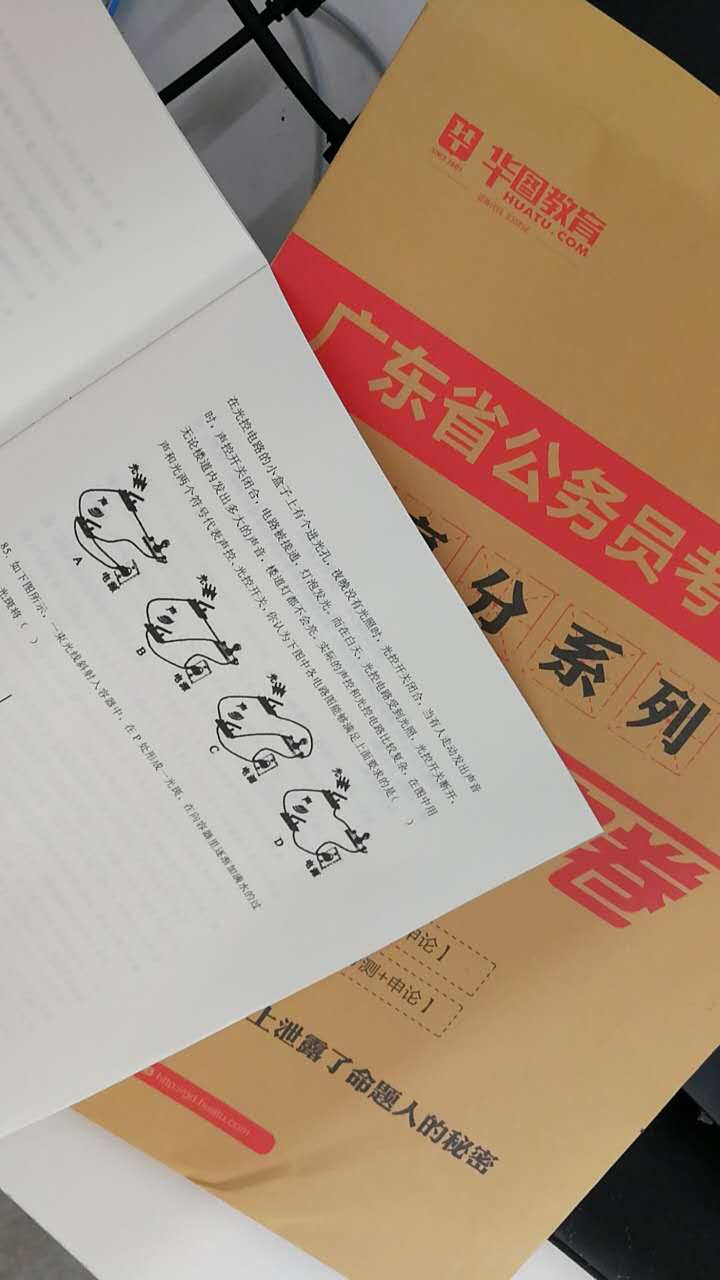 华图教育
HUATU.COM
广东省公务员考
分系列
卷
申论】
测+申论】
上泄露了命题人的秘密
http://gd.huatu.com
在光控电路的小盒子上有个进光孔,夜晚没有光照时,光控开关闭合,当有人走动发出声音
时,声控开关闭合,电路被接通,灯泡发光,而在白天,光控电路受到光照,光控开关断开,
无论楼道内发出多大的声音,楼道灯都不会亮,实际的声控和光控电路比较复杂,在图中用
声和光两个符号代表声控、光控开关,你认为下图中各电路图能够满足上面要求的是( )
光 声
电源
A
光 声
电源
B
光 声
电源
C
光 声
电源
D
85. 如下图所示,一束光线斜射入容器中,在P处形成一光斑,在向容器里逐渐加满水的过
光斑将( )